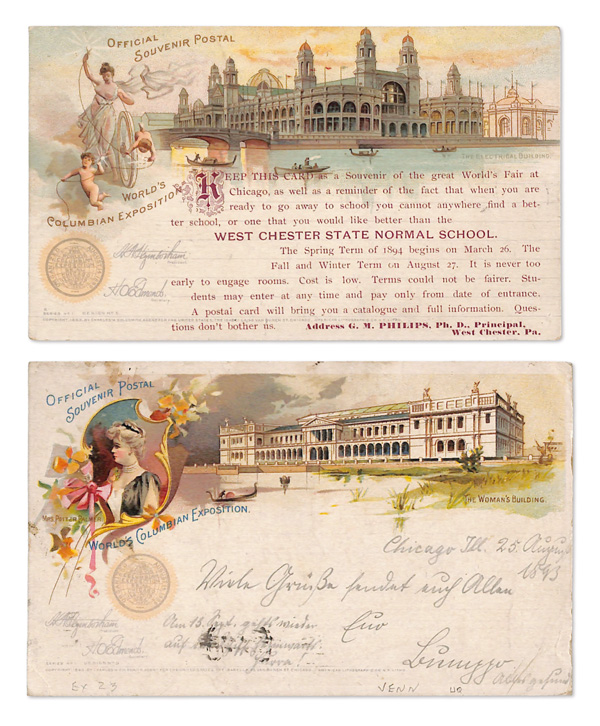 OFFICIAL
SOUVENIR POSTAL
THE ELECTRICAL BUILDING
WORLD'S
COLUMBIAN EXPOSITION
KEEP THIS CARD as a Souvenir of the great World's Fair at
Chicago, as well as a reminder of the fact that when you are
ready to go away to school you cannot anywhere find a bet-
ter school, or one that you would like better than the
WEST CHESTER STATE NORMAL SCHOOL.
The Spring Term of 1894 begins on March 26. The
Fall and Winter Term on August 27. It is never too
early to engage rooms. Cost is low. Terms could not be fairer. Stu-
dents may enter at any time and pay only from date of entrance.
A postal card will bring you a catalogue and full information. Ques-
tions don't bother us. Address G. M. PHILIPS, Ph. D., Principal,
West Chester, Pa.
OFFICIAL
SOUVENIR POSTAL
THE WOMAN'S BUILDING.
WORLD'S COLUMBIAN EXPOSITION.
Chicago Ill. 25. August
1893
Viele Grüße sendet euch Allen
Am 15. Sept. geht's wieder
Euo
auf heimwärts.
Ex 23
VENN